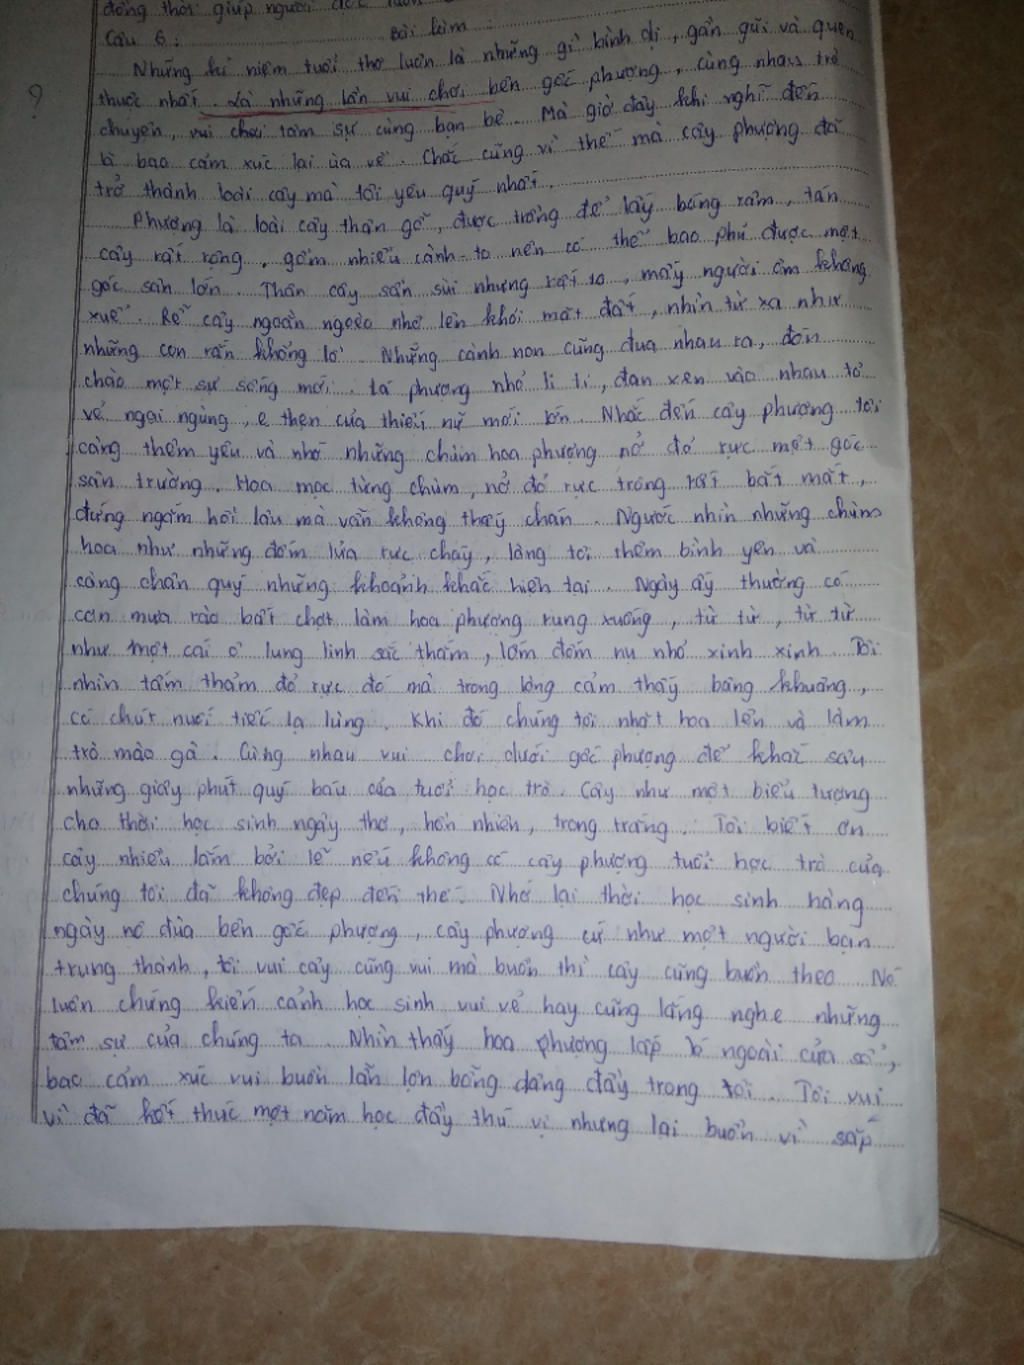 đồng thời giúp người đọc
Câu 6: Bài làm
Những kỉ niệm tuổi thơ luôn là những gì bình dị, gần gũi và quen
?
thuộc nhất. Là những lần vui chơi bên gốc phượng, cùng nhau trò
chuyện, vui chơi tâm sự cùng bạn bè. Mà giờ đây khi nghĩ đến
bao cảm xúc lại ùa về. Chắc cũng vì thế mà cây phượng đã
trở thành loài cây mà tôi yêu quý nhất.
Phượng là loài cây thân gỗ, được trồng để lấy bóng râm, tán
cây rất rộng, gồm nhiều cành to nên có thể bao phủ được một
góc sân lớn. Thân cây sần sùi nhưng rất to, mấy người ôm không
xuể. Rễ cây ngoằn ngoèo nhô lên khỏi mặt đất, nhìn từ xa như
những con rắn khổng lồ. Những cành non cũng đua nhau ra, đón
chào một sự sống mới. Lá phượng nhỏ li ti, đan xen vào nhau tỏ
vẻ ngại ngùng, e thẹn của thiếu nữ mới lớn. Nhắc đến cây phượng tôi
càng thêm yêu và nhớ những chùm hoa phượng nở đỏ rực một góc
sân trường. Hoa mọc từng chùm, nở đỏ rực trông rất bắt mắt,
đứng ngắm hồi lâu mà vẫn không thấy chán. Ngước nhìn những chùm
hoa như những đốm lửa rực cháy, lòng tôi thêm bình yên và
càng chân quý những khoảnh khắc hiện tại. Ngày ấy thường có
cơn mưa rào bất chợt làm hoa phượng rụng xuống, từ từ, từ từ
như một cái ô lung linh sắc thắm, lốm đốm nụ nhỏ xinh xinh. Tôi
nhìn tấm thảm đỏ rực đó mà trong lòng cảm thấy bâng khuâng,
có chút nuối tiếc lạ lùng. Khi đó chúng tôi nhặt hoa lên và làm
trò mào gà. Cùng nhau vui chơi dưới gốc phượng để khắc sâu
những giây phút quý báu của tuổi học trò. Cây như một biểu tượng
cho thời học sinh ngây thơ, hồn nhiên, trong trắng. Tôi biết ơn
cây nhiều lắm bởi lẽ nếu không có cây phượng tuổi học trò của
chúng tôi đã không đẹp đến thế. Nhớ lại thời học sinh hàng
ngày nô đùa bên gốc phượng, cây phượng cứ như một người bạn
trung thành, tôi vui cây cũng vui mà buồn thì cây cũng buồn theo. Nó
luôn chứng kiến cảnh học sinh vui vẻ hay cũng lắng nghe những
tâm sự của chúng ta. Nhìn thấy hoa phượng lấp ló ngoài cửa sổ,
bao cảm xúc vui buồn lẫn lộn bỗng dâng đầy trong tôi. Tôi vui
vì đã kết thúc một năm học đầy thú vị nhưng lại buồn vì sắp